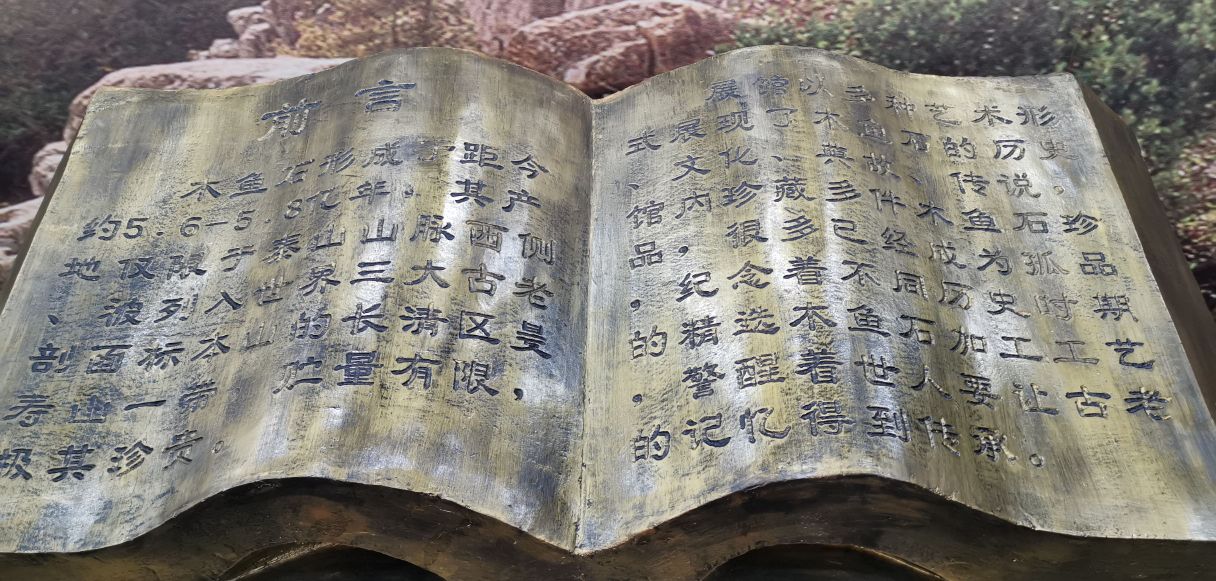 前言
木鱼石形成于距今
约5.6-5.8亿年，其产
地仅限于泰山山脉西侧
、波列入世界三大古老
剖面标本山的长清区
一带贮量有限，
极其珍贵。
展馆以多种艺术形
式展现了木鱼石的历史，
、文化、典故、传说，
馆内珍藏多件木鱼石珍
品，很多已经成为孤品
，纪念着不同历史时期
的精选木鱼石加工工艺
，警醒着世人要让古老
的记忆得到传承。